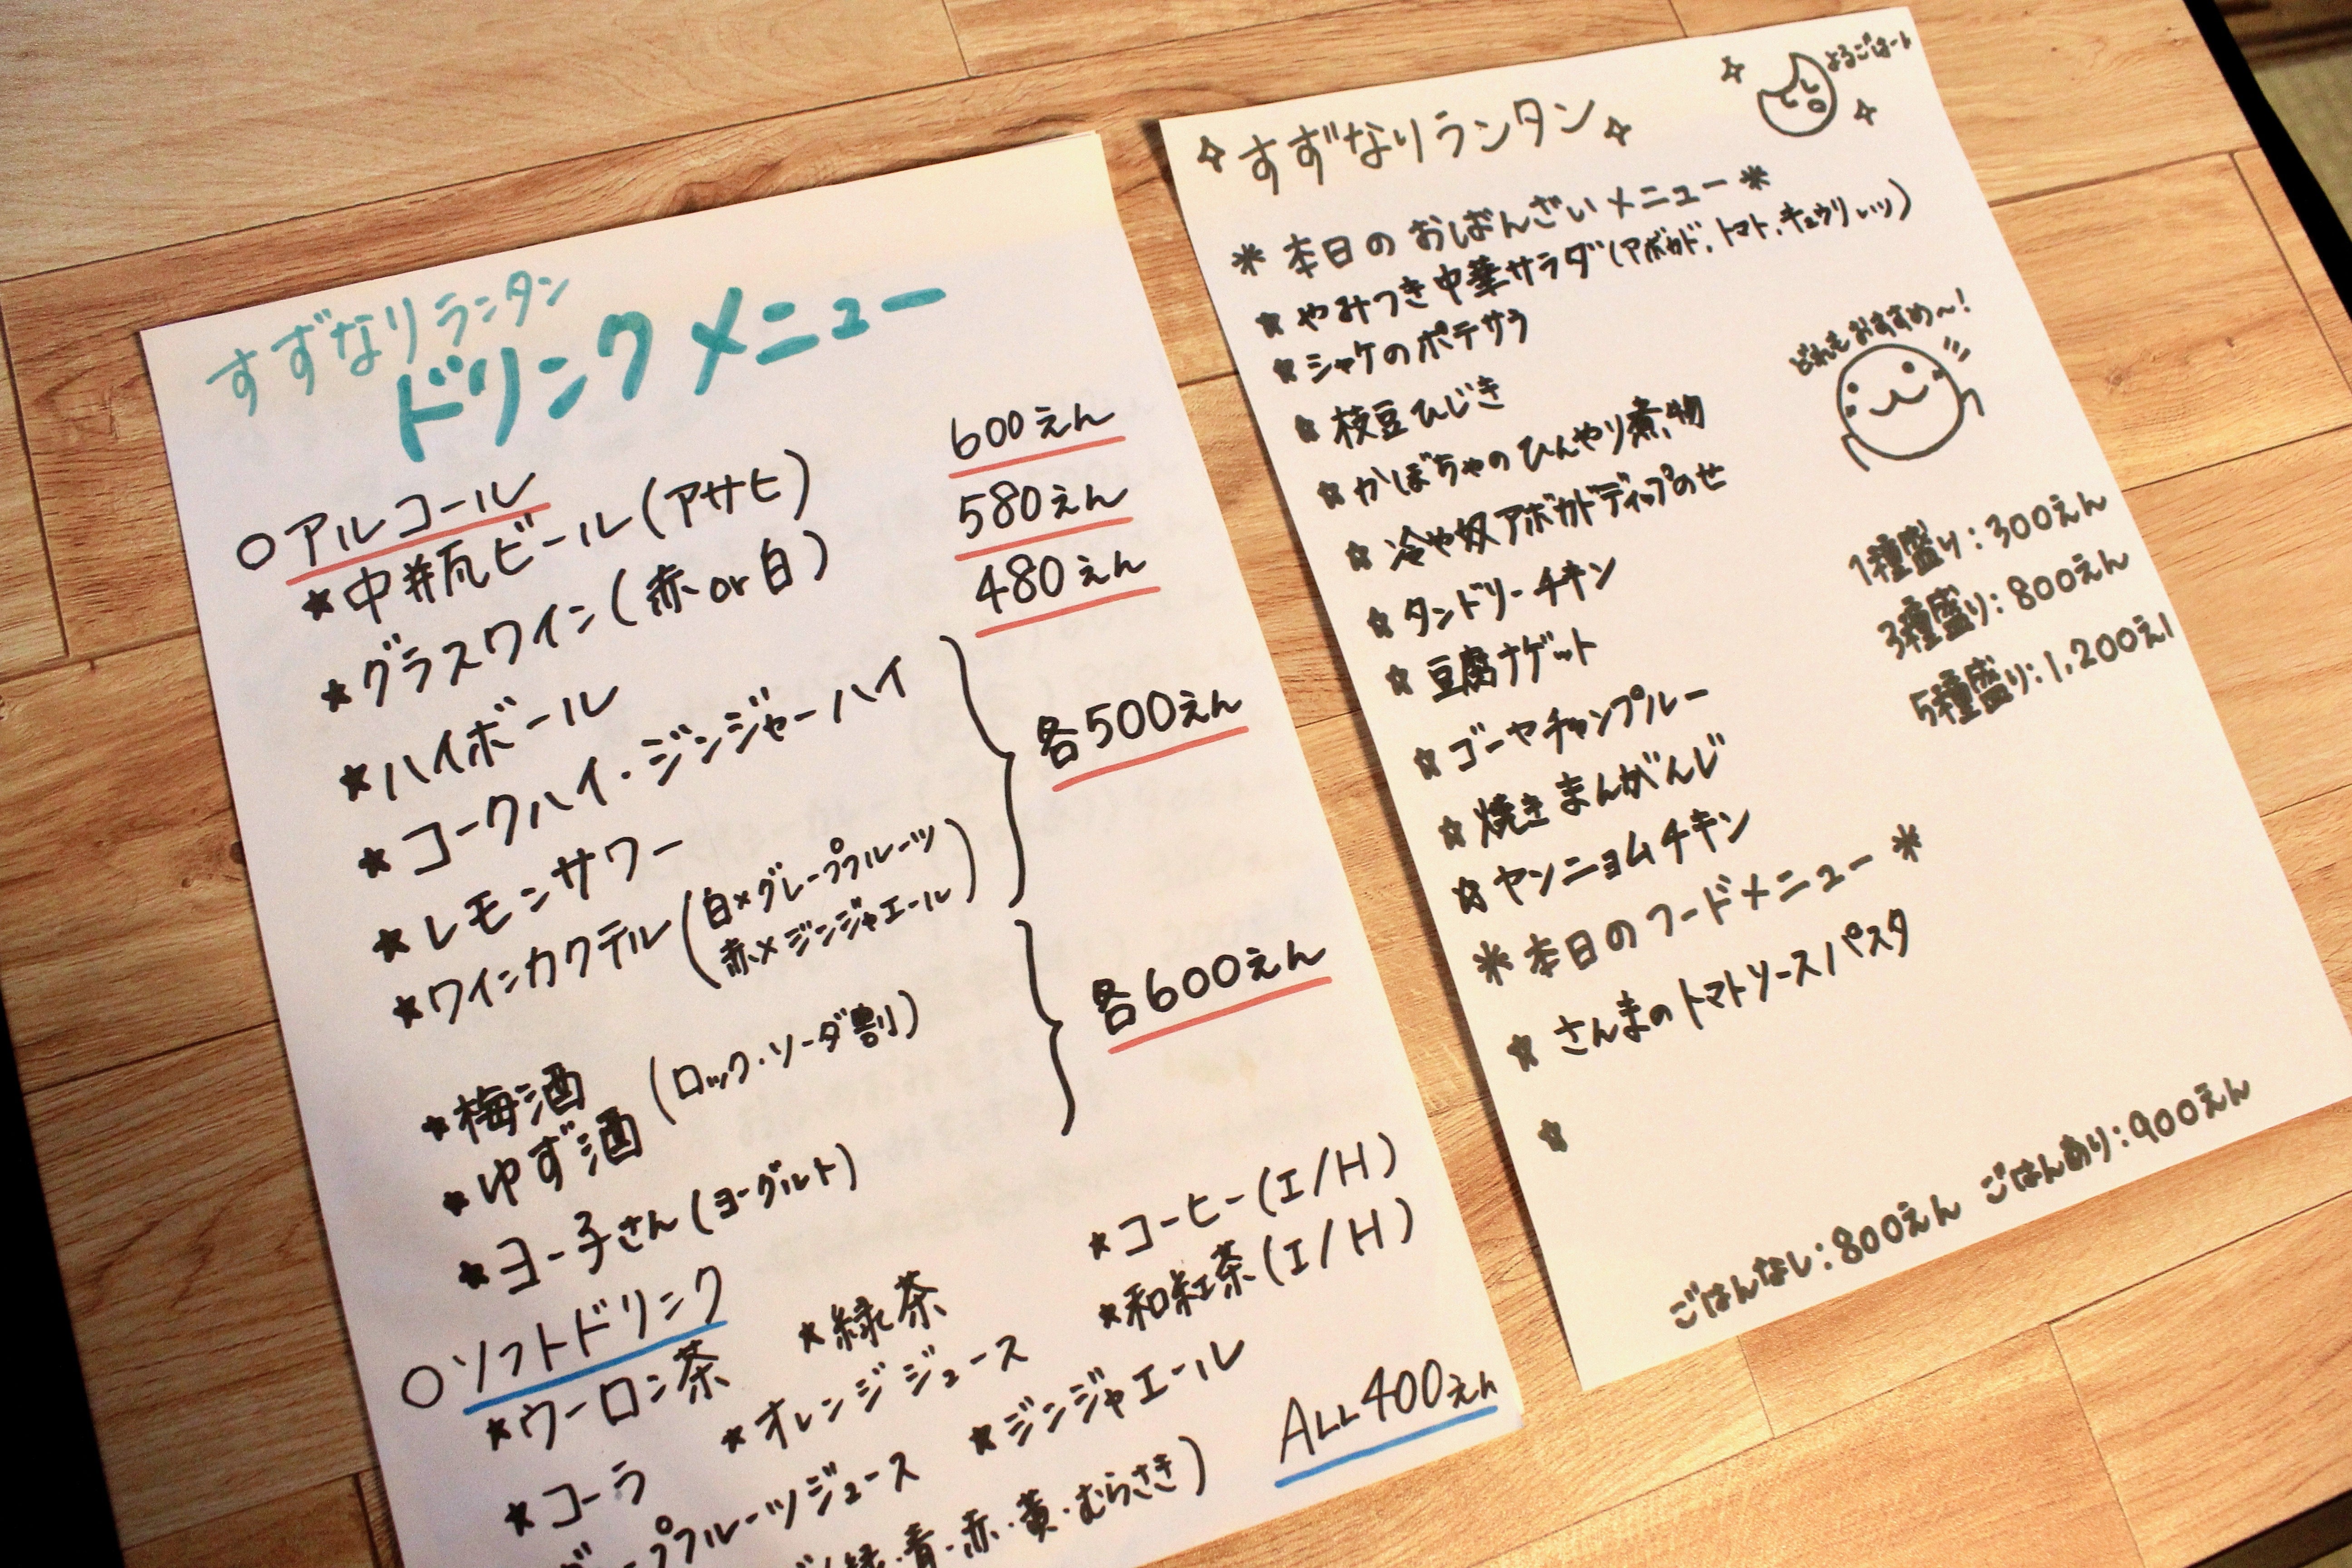 すずなりランタン
ドリンクメニュー
○アルコール
★中瓶ビール(アサヒ) 600えん
★グラスワイン(赤or白) 580えん
★ハイボール 480えん
★コークハイ・ジンジャーハイ
★レモンサワー
各500えん
★ワインカクテル(白×グレープフルーツ
赤×ジンジャエール)
★梅酒
★ゆず酒
(ロック・ソーダ割)
★ヨー子さん(ヨーグルト)
各600えん
○ソフトドリンク
★ウーロン茶 ★緑茶 ★コーヒー(I/H)
★コーラ ★オレンジジュース ★和紅茶(I/H)
ープフルーツジュース ★ジンジャエール
緑・青・赤・黄・むらさき)
ALL400えん
すずなりランタン
よるごはーん
*本日のおばんざいメニュー*
★やみつき中華サラダ(アボカド、トマト、キュウリ
★シャケのポテサラ
★枝豆ひじき
★かぼちゃのひんやり煮物
★冷や奴アボカドディップのせ
★タンドリーチキン
★豆腐ナゲット
★ゴーヤチャンプルー
★焼きまんがんじ
★ヤンニョムチキン
どれもおすすめ〜!
1種盛り:300えん
3種盛り:800えん
5種盛り:1,200え
*本日のフードメニュー*
★さんまのトマトソースパスタ
★
ごはんなし:800えん ごはんあり:900えん